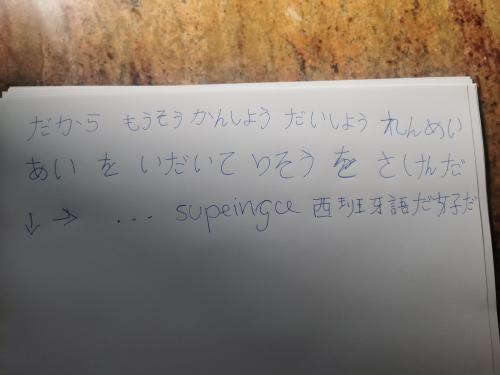 だから もうそう かんしよう だいしよう れんめい
あい を いだいて りそう を さけんだ
↓ → ... supeingce 西班牙語だ好だ